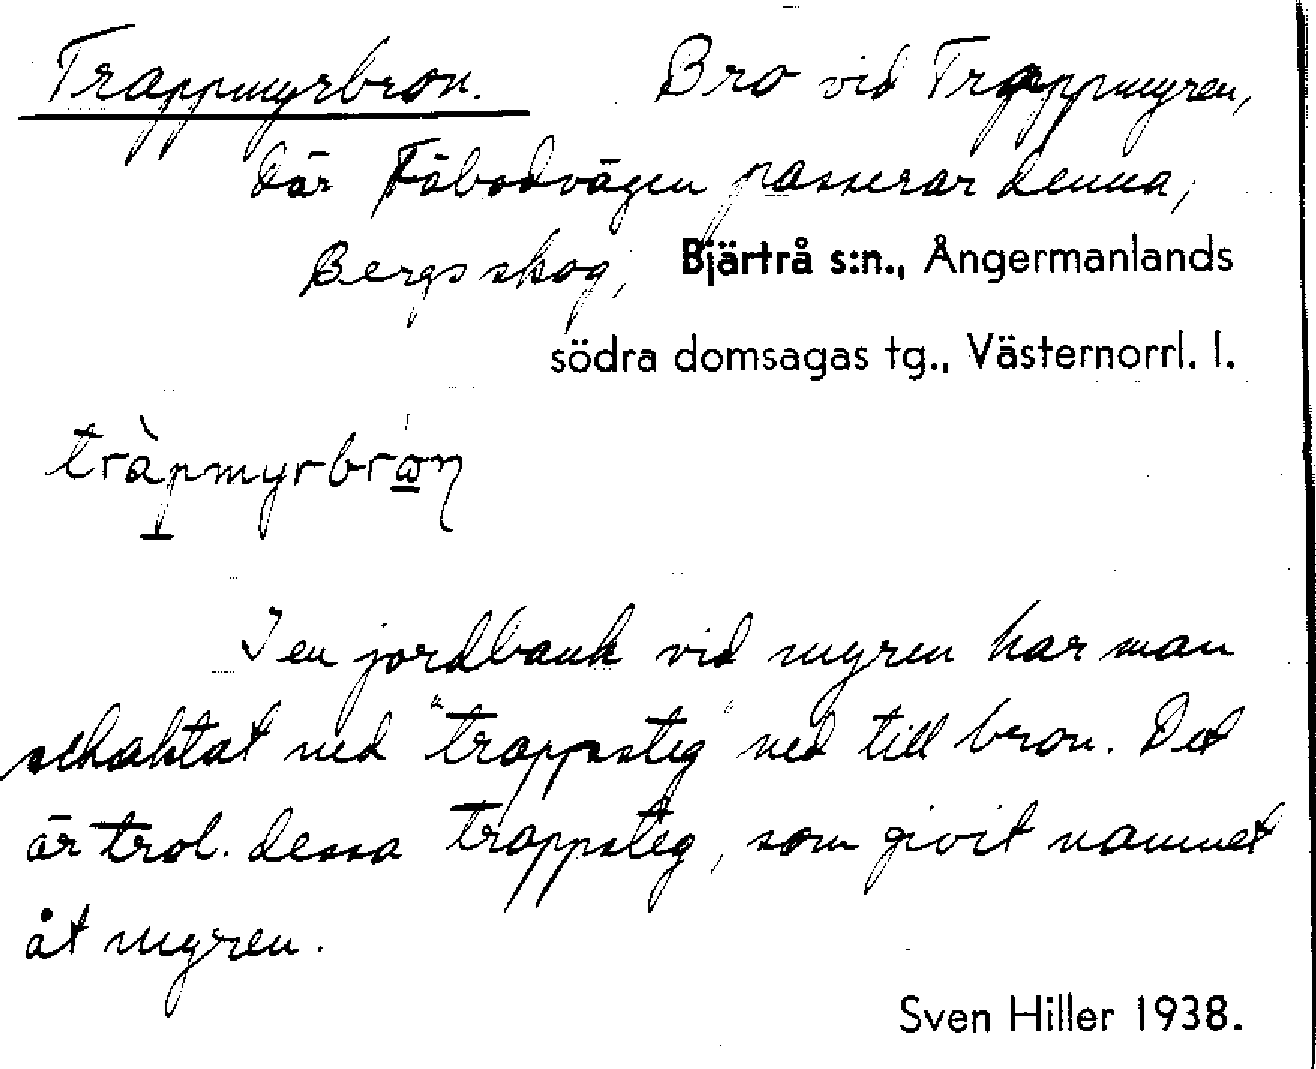 Trappmyrbron. Bro vid Trappmyren,
där Fäbodvägen passerar denna,
Bergs skog, Bjärtrå s:n., Ångermanlands
södra domsagas tg., Västernorrl. l.
tràpmyrbrώ̲n
I en jordbank vid myren har man
schaktat ned "trappsteg" ned till bron. Det
är trol. dessa trappsteg, som givit namnet
åt myren.
Sven Hiller 1938.